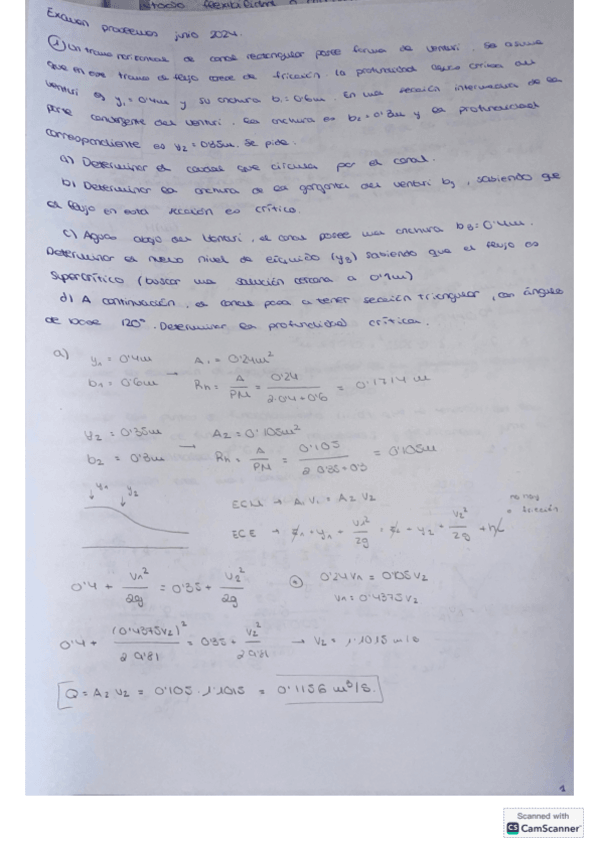 Método flexibilidad
Examen problemas junio 2024.
① Un tramo horizontal de canal rectangular posee forma de Venturi. Se asume
que en este tramo el flujo carece de fricción. La profundidad aguas arriba del
Venturi es y₁ = 0'4m y su anchura b₁ = 0'6m. En una sección intermedia de la
parte convergente del Venturi, la anchura es b₂ = 0'3m y la profundidad
correspondiente es y₂ = 0'35m. Se pide.
a) Determinar el caudal que circula por el canal.
b) Determinar la anchura de la garganta del Venturi b₃, sabiendo que
el flujo en esta sección es crítico.
c) Aguas abajo del Venturi, el canal posee una anchura b₃ = 0'4m.
Determinar el nuevo nivel de (y₃) sabiendo que el flujo es
supercrítico (buscar una solución cercana a 0'1m)
d) A continuación, el canal pasa a tener sección triangular, con ángulo
de base 120°. Determinar la profundidad crítica.
a) y₁ = 0'4m → A₁ = 0'24m²
b₁ = 0'6m Rh = A/PM = 0'24/(2·0'4+0'6) = 0'1714 m
y₂ = 0'35m → A₂ = 0'105m²
b₂ = 0'3m Rh = A/PM = 0'105/(2·0'35+0'3) = 0'105m
y₁ y₂
ECM → A₁V₁ = A₂V₂
no hay fricción
ECE → z₁ + y₁ + V₁²/2g = z₂ + y₂ + V₂²/2g + h
0'4 + V₁²/2g = 0'35 + V₂²/2g 0'24V₁ = 0'105V₂
V₁ = 0'4375V₂
0'4 + (0'4375V₂)²/2·9'81 = 0'35 + V₂²/2·9'81 → V₂ = 1'1015 m/s
Q = A₂V₂ = 0'105 · 1'1015 = 0'1156 m³/s.
1
Scanned with
CS CamScanner